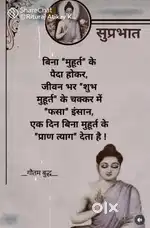 ShareChat
सुप्रभात
बिना "मुहूर्त" के
पैदा होकर,
जीवन भर "शुभ
मुहूर्त" के चक्कर में
"फसा" इंसान,
एक दिन बिना मुहूर्त के
"प्राण त्याग" देता है !
_गौतम बुद्ध_
olx